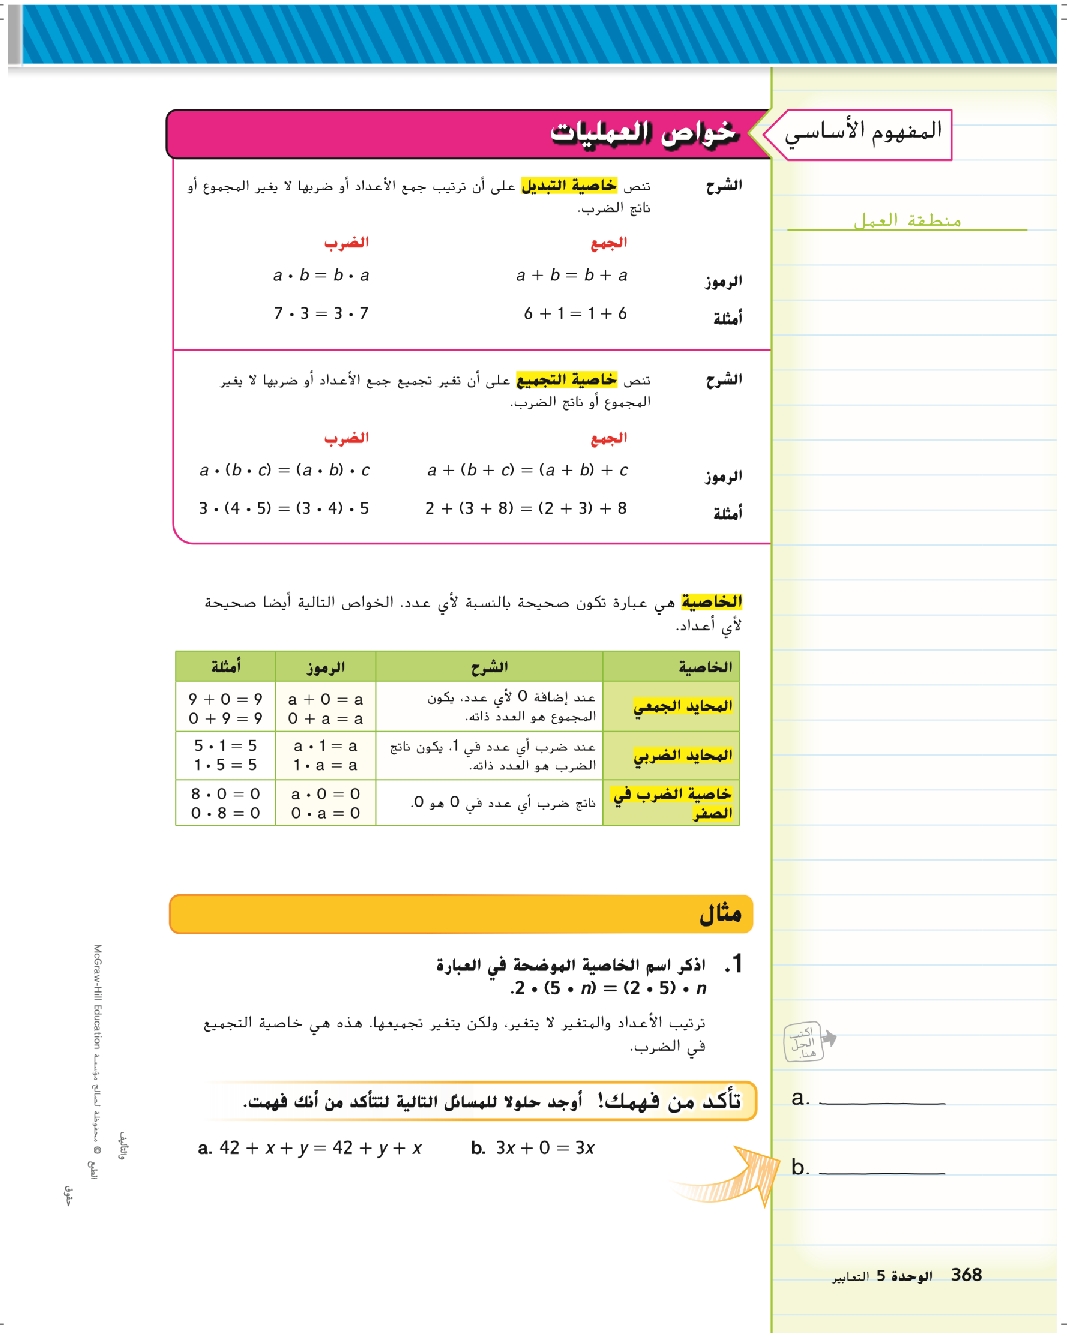 المفهوم الأساسي
خواص العمليات
منطقة العمل
الشرح
تنص خاصية التبديل على أن ترتيب جمع الأعداد أو ضربها لا يغير المجموع أو
ناتج الضرب.
الجمع الضرب
الرموز a + b = b + a a • b = b • a
أمثلة 6 + 1 = 1 + 6 7 • 3 = 3 • 7
الشرح
تنص خاصية التجميع على أن تغير تجميع جمع الأعداد أو ضربها لا يغير
المجموع أو ناتج الضرب.
الجمع الضرب
الرموز a + (b + c) = (a + b) + c a • (b • c) = (a • b) • c
أمثلة 2 + (3 + 8) = (2 + 3) + 8 3 • (4 • 5) = (3 • 4) • 5
الخاصية هي عبارة تكون صحيحة بالنسبة لأي عدد. الخواص التالية أيضا صحيحة
لأي أعداد.
الخاصية الشرح الرموز أمثلة
المحايد الجمعي
عند إضافة 0 لأي عدد، يكون
المجموع هو العدد ذاته.
a + 0 = a
0 + a = a
9 + 0 = 9
0 + 9 = 9
المحايد الضربي
عند ضرب أي عدد في 1، يكون ناتج
الضرب هو العدد ذاته.
a • 1 = a
1 • a = a
5 • 1 = 5
1 • 5 = 5
خاصية الضرب في
الصفر
ناتج ضرب أي عدد في 0 هو 0.
a • 0 = 0
0 • a = 0
8 • 0 = 0
0 • 8 = 0
مثال
1. اذكر اسم الخاصية الموضحة في العبارة
2 • (5 • n) = (2 • 5) • n.
ترتيب الأعداد والمتغير لا يتغير، ولكن يتغير تجميعها. هذه هي خاصية التجميع
في الضرب.
اكتب
الحل
هنا.
تأكد من فهمك! أوجد حلولا للمسائل التالية لتتأكد من أنك فهمت.
a. 42 + x + y = 42 + y + x b. 3x + 0 = 3x
a.
b.
368 الوحدة 5 التعابير
حقوق
الطبع © محفوظة لصالح مؤسسة McGraw-Hill Education
والتأليف